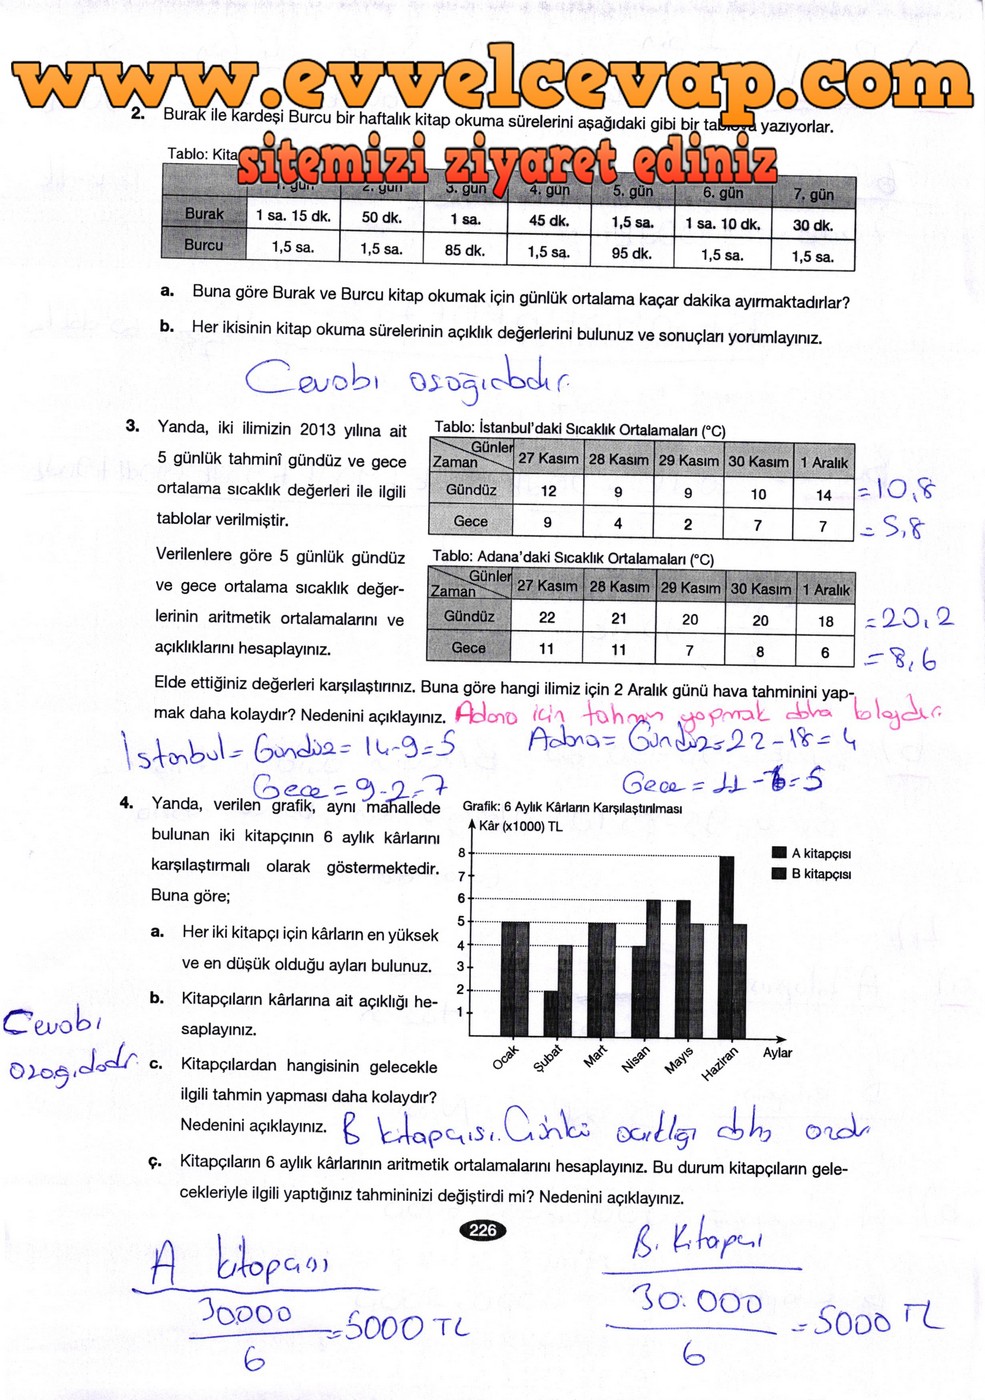 www.evvelcevap.com
2. Burak ile kardeşi Burcu bir haftalık kitap okuma sürelerini aşağıdaki gibi bir tabloya yazıyorlar.
sitemizi ziyaret ediniz
Tablo: Kita
1. gün 2. gün 3. gün 4. gün 5. gün 6. gün 7. gün
Burak 1 sa. 15 dk. 50 dk. 1 sa. 45 dk. 1,5 sa. 1 sa. 10 dk. 30 dk.
Burcu 1,5 sa. 1,5 sa. 85 dk. 1,5 sa. 95 dk. 1,5 sa. 1,5 sa.
a. Buna göre Burak ve Burcu kitap okumak için günlük ortalama kaçar dakika ayırmaktadırlar?
b. Her ikisinin kitap okuma sürelerinin açıklık değerlerini bulunuz ve sonuçları yorumlayınız.
Cevabı aşağıdadır.
3. Yanda, iki ilimizin 2013 yılına ait
5 günlük tahminî gündüz ve gece
ortalama sıcaklık değerleri ile ilgili
tablolar verilmiştir.
Verilenlere göre 5 günlük gündüz
ve gece ortalama sıcaklık değer-
lerinin aritmetik ortalamalarını ve
açıklıklarını hesaplayınız.
Tablo: İstanbul'daki Sıcaklık Ortalamaları (°C)
Günler
Zaman 27 Kasım 28 Kasım 29 Kasım 30 Kasım 1 Aralık
Gündüz 12 9 9 10 14 =10,8
Gece 9 4 2 7 7 = 5,8
Tablo: Adana'daki Sıcaklık Ortalamaları (°C)
Günler
Zaman 27 Kasım 28 Kasım 29 Kasım 30 Kasım 1 Aralık
Gündüz 22 21 20 20 18 =20,2
Gece 11 11 7 8 6 =8,6
Elde ettiğiniz değerleri karşılaştırınız. Buna göre hangi ilimiz için 2 Aralık günü hava tahminini yap-
mak daha kolaydır? Nedenini açıklayınız. Adana için tahmin yapmak daha kolaydır.
İstanbul= Gündüz= 14-9=5 Adana= Gündüz=22-18=4
Gece=9-2=7 Gece = 11-6=5
4. Yanda, verilen grafik, aynı mahallede
bulunan iki kitapçının 6 aylık kârlarını
karşılaştırmalı olarak göstermektedir.
Buna göre;
a. Her iki kitapçı için kârların en yüksek
ve en düşük olduğu ayları bulunuz.
b. Kitapçıların kârlarına ait açıklığı he-
saplayınız.
Cevabı
aşağıdadır.
c. Kitapçılardan hangisinin gelecekle
ilgili tahmin yapması daha kolaydır?
Nedenini açıklayınız. B kitapçısı. Çünkü açıklığı daha azdır
Grafik: 6 Aylık Kârların Karşılaştırılması
Kâr (x1000) TL
A kitapçısı
B kitapçısı
8
7
6
5
4
3
2
1
Ocak Şubat Mart Nisan Mayıs Haziran Aylar
ç. Kitapçıların 6 aylık kârlarının aritmetik ortalamalarını hesaplayınız. Bu durum kitapçıların gele-
cekleriyle ilgili yaptığınız tahmininizi değiştirdi mi? Nedenini açıklayınız.
226
A kitapçısı
30000
6
=5000 TL
B. Kitapçı
30.000
6
=5000 TL